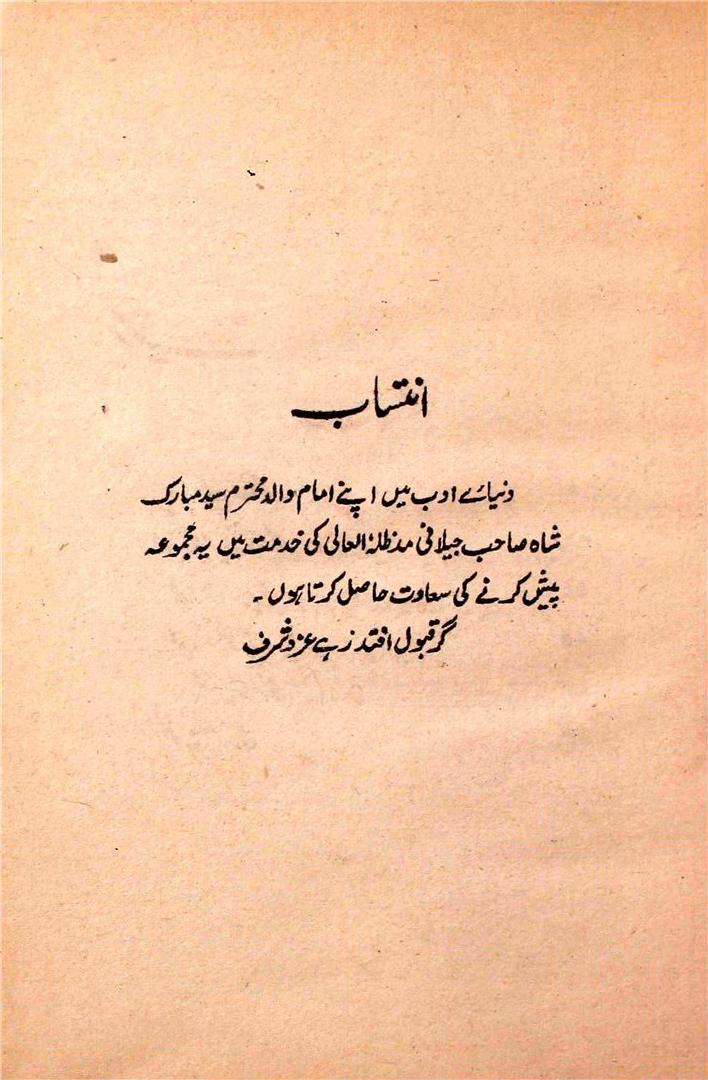 انتساب
دنیائے ادب میں اپنے امام والد محترم سید مبارک
شاہ صاحب جیلانی مدظلہٗ العالی کی خدمت میں یہ مجموعہ
پیش کرنے کی سعاوت حاصل کرتا ہوں ۔
گر قبول افتد زہے عز و شرف